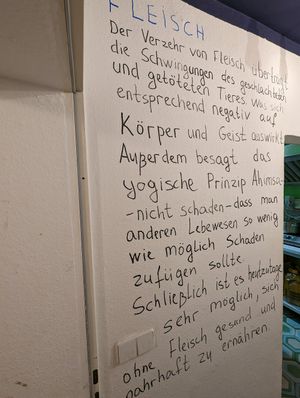 FLEISCH
Der Verzehr von Fleisch überträgt
die Schwingungen des geschlachteten
und getöteten Tieres. Was sich
entsprechend negativ auf
Körper und Geist auswirkt
Außerdem besagt das
yogische Prinzip Ahimsa-
-nicht schaden-dass man
anderen Lebewesen so wenig
wie möglich Schaden
zufügen sollte.
Schließlich ist es heutzutage
sehr möglich, sich
ohne Fleisch gesund und
nahrhaft zu ernähren.